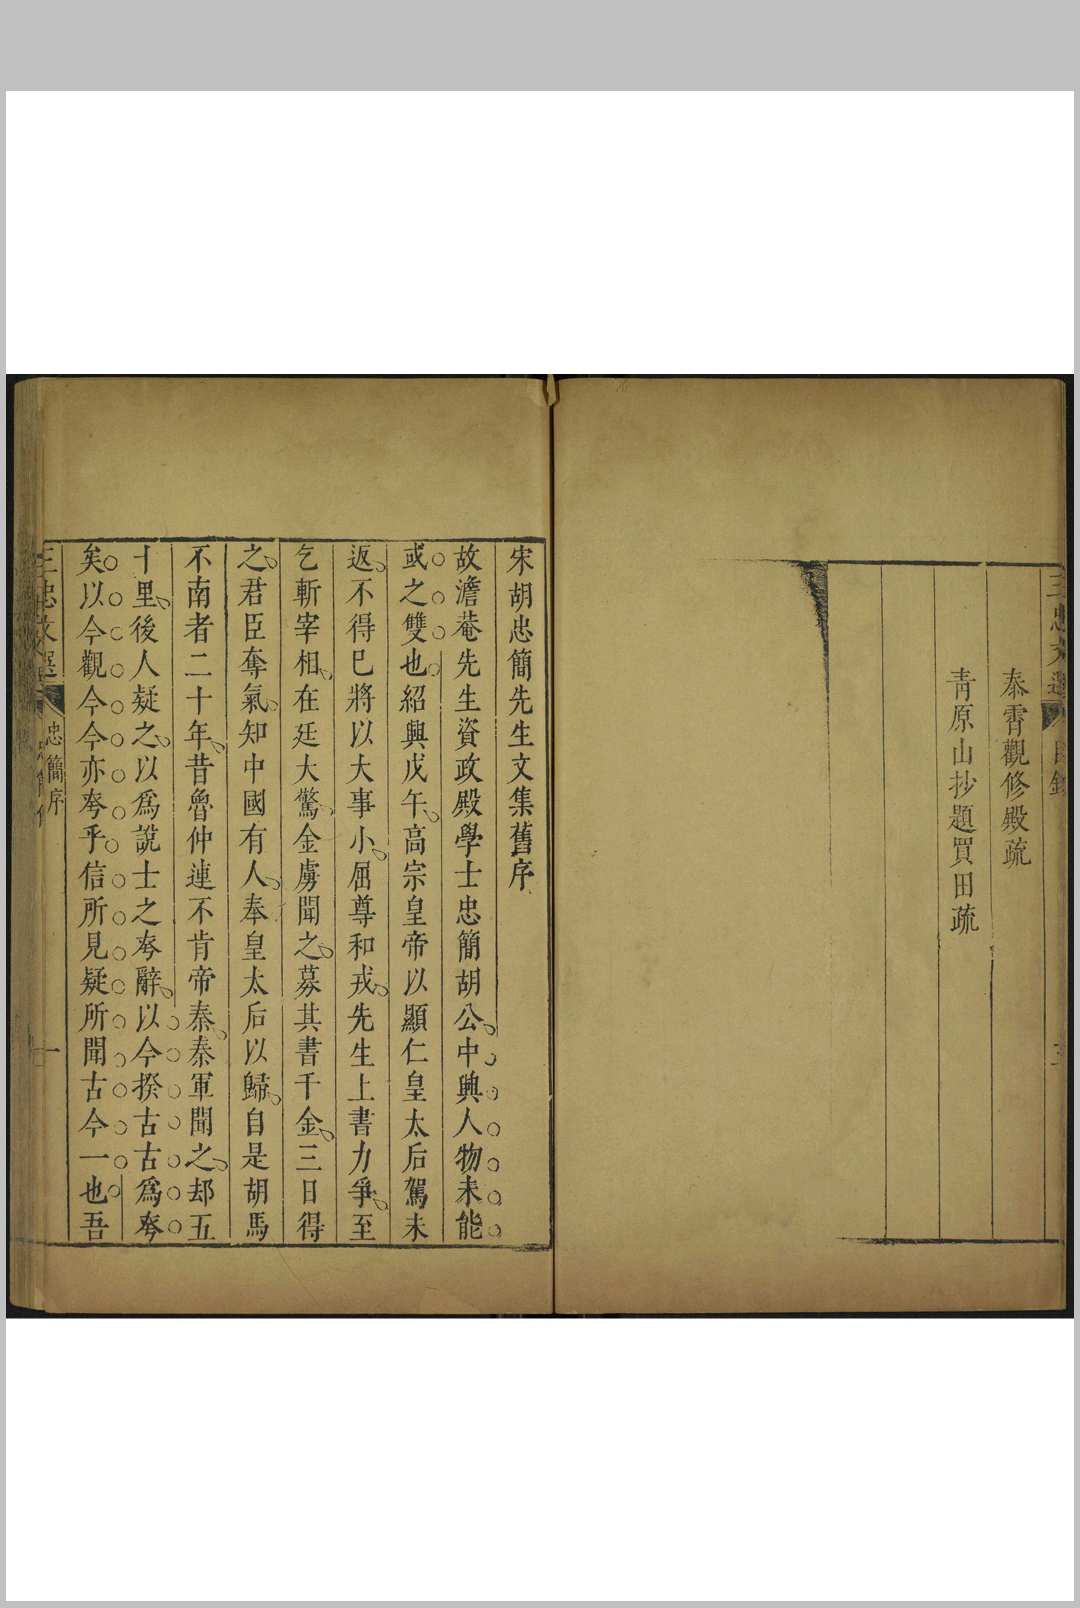 三忠文選
目錄
泰霄觀修殿疏
青原山抄題買田疏
宋胡忠簡先生文集舊序
故澹菴先生資政殿學士忠簡胡公中興人物未能
或之雙也紹興戊午高宗皇帝以顯仁皇太后駕未
返不得已將以大事小屈尊和戎先生上書力爭至
乞斬宰相在廷大驚金虜聞之募其書千金三日得
之君臣奪氣知中國有人奉皇太后以歸自是胡馬
不南者二十年昔魯仲連不肯帝秦秦軍聞之却五
十里後人疑之以為說士之夸辭以今揆古古為夸
矣以今觀今今亦夸乎信所見疑所聞古今一也吾
三忠文選
忠簡序
一